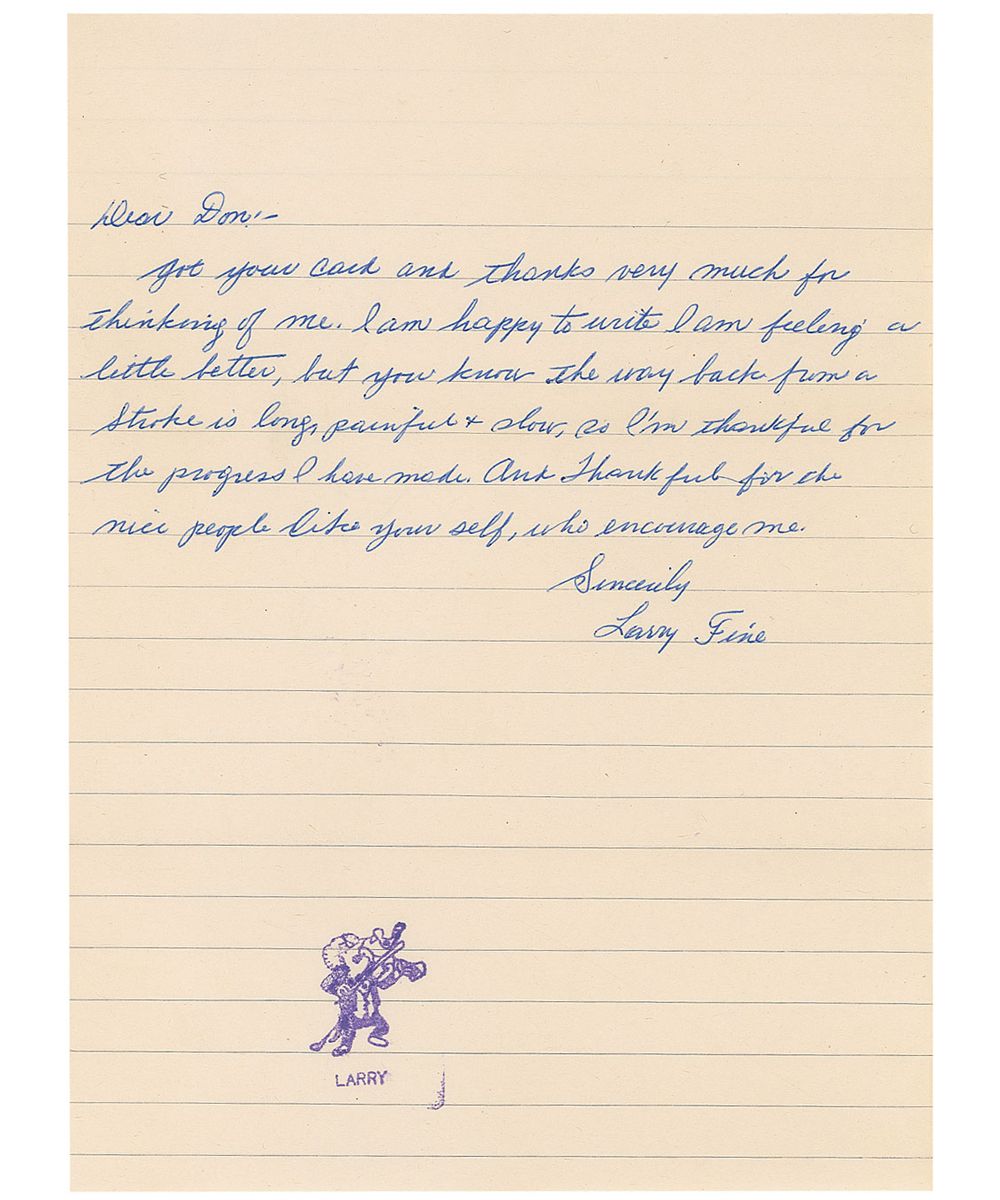 Dear Don:-
Got your card and thanks very much for
thinking of me. I am happy to write I am feeling a
little better, but you know the way back from a
Stroke is long, painful + slow, so I'm thankful for
the progress I have made. And Thankful for the
nice people like your self, who encourage me.
Sincerely
Larry Fine
LARRY